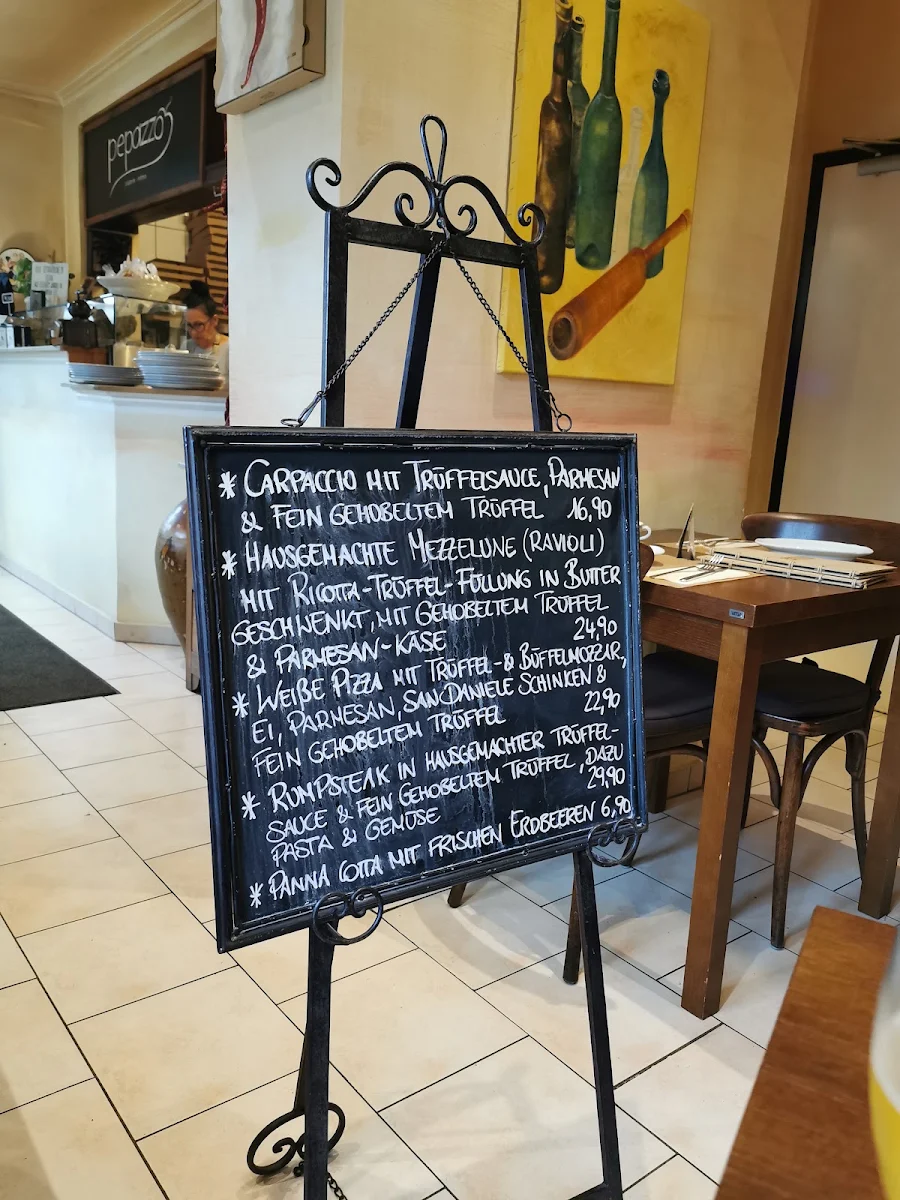 pepazzo's
* CARPACCIO MIT TRÜFFELSAUCE, PARMESAN
& FEIN GEHOBELTEM TRÜFFEL 16,90
* HAUSGEMACHTE MEZZELUNE (RAVIOLI)
MIT RICOTTA-TRÜFFEL-FÜLLUNG IN BUTTER
GESCHWENKT, MIT GEHOBELTEM TRÜFFEL
& PARMESAN-KÄSE 24,90
* WEIßE PIZZA MIT TRÜFFEL- & BÜFFELMOZZAR,
EI, PARMESAN, SAN DANIELE SCHINKEN &
FEIN GEHOBELTEM TRÜFFEL 22,90
* RUMPSTEAK IN HAUSGEMACHTER TRÜFFEL-
SAUCE & FEIN GEHOBELTEM TRÜFFEL, DAZU
PASTA & GEMÜSE 29,90
* PANNA COTTA MIT FRISCHEN ERDBEEREN 6,90